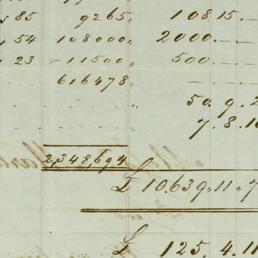 85 9265 108.15.
54 108000 2000.
23 11500 500.
616478
50.9.2
7.8.10
2,348,694
£ 10.639.11.7
£ 125,4.11